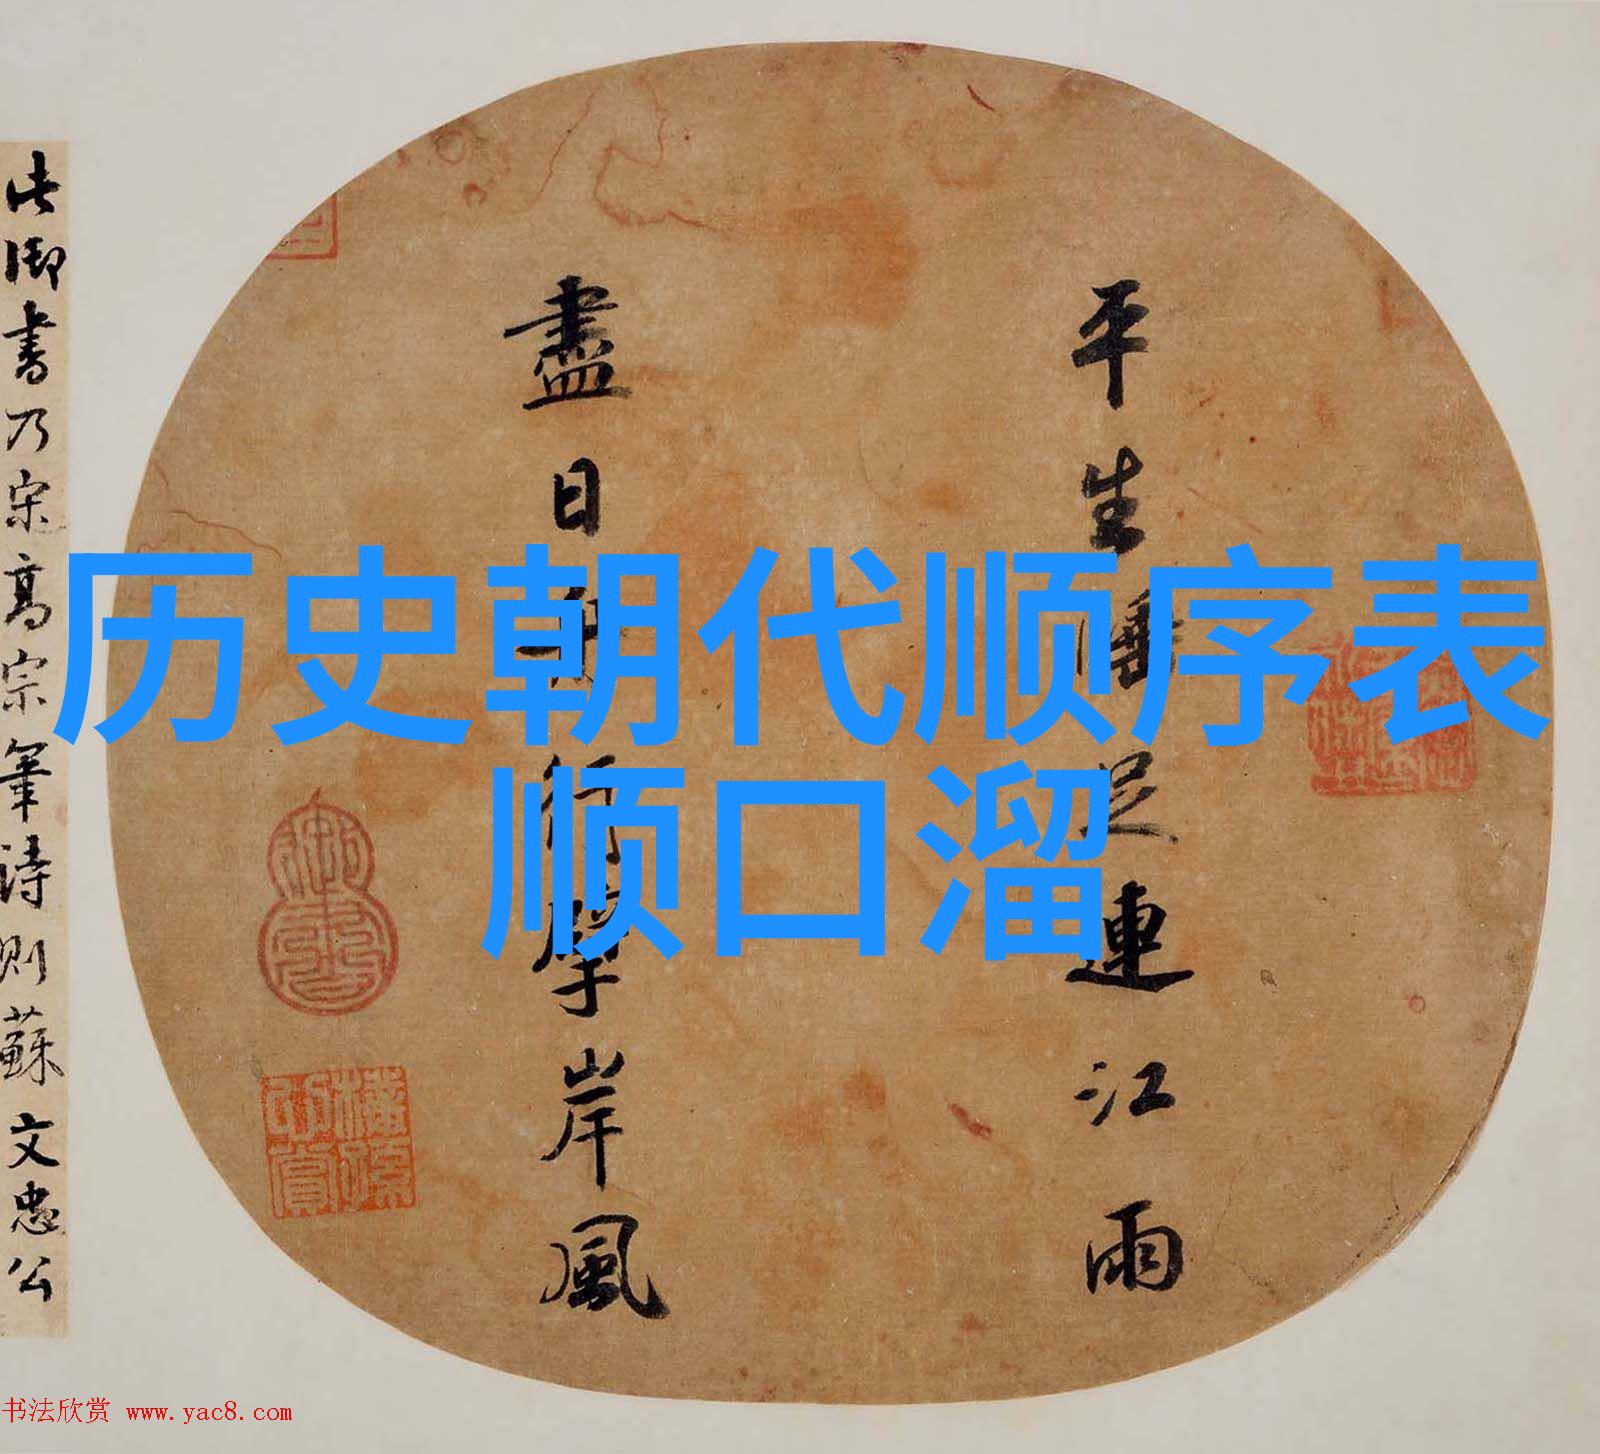 历史朝代顺序表
顺口溜
平生睡足連江雨
盡日舟行擘岸風
此御書乃宋高宗筆詩則蘇文忠公
书法欣赏 www.yac8.com